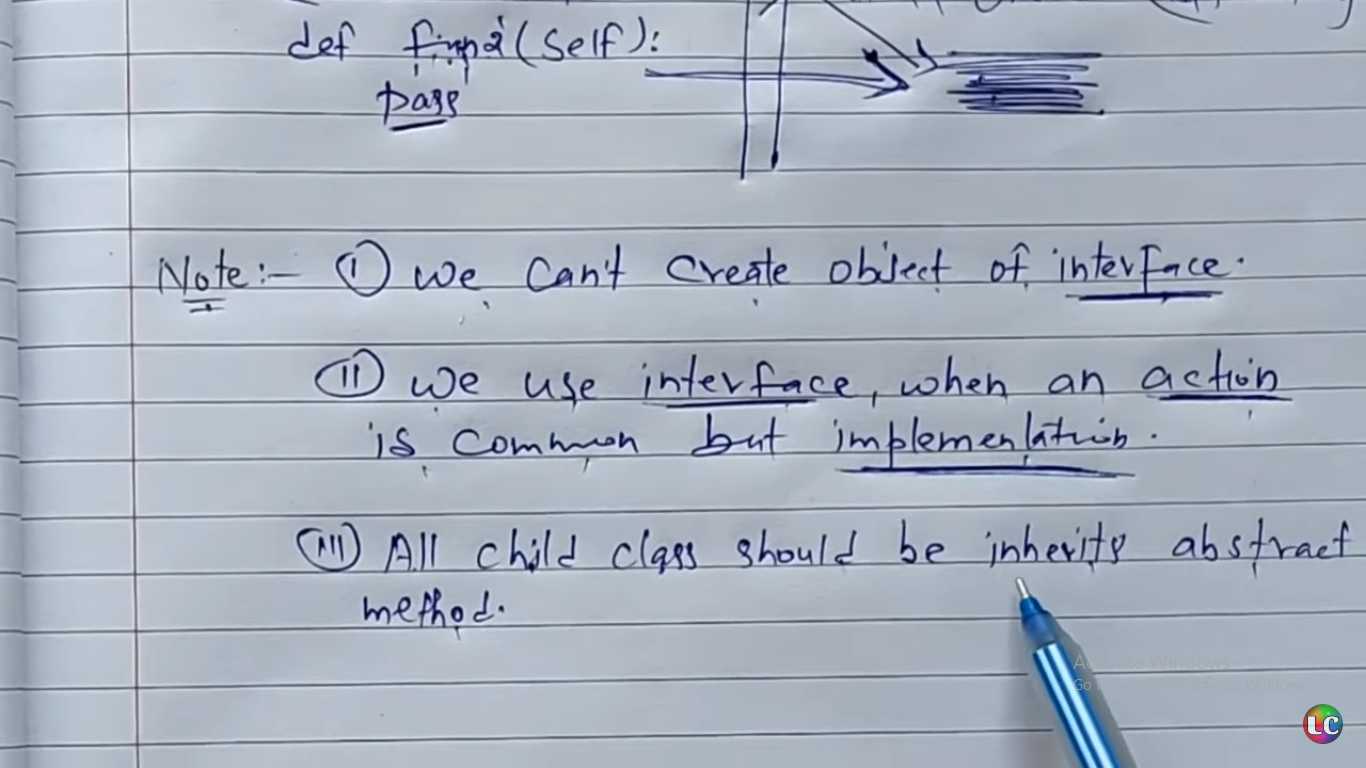 def fun2(self):
pass
Note:- (I) We can't create object of interface.
(II) We use interface, when an action
is common but implementation.
(III) All child class should be inherits abstract
method.
Activate Windows
Go to Settings to activate Windows.
LC